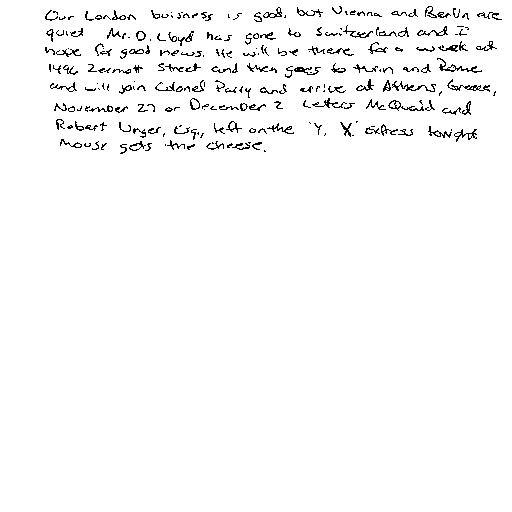 Our London buisness is good, but Vienna and Berlin are
quiet Mr. D. Lloyd has gone to Switzerland and I
hope for good news. He will be there for a week at
1496 Zermott Street and then goes to turin and Rome
and will join Colonel Parry and arrive at Athens, Greece,
November 27 or December 2 Letters McQuaid and
Robert Unger, Esq., left on the 'Y. X.' Exfress tonight
Mouse gets the cheese.